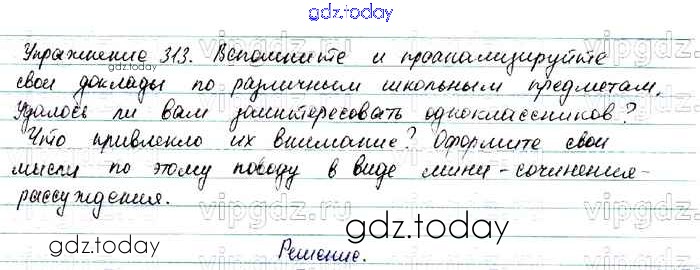 gdz.today
Упражнение 313. Вспомните и проанализируйте
свои доклады по различным школьным предметам.
gdz.today
Удалось ли вам заинтересовать одноклассников?
Что привлекло их внимание? Оформите свои
мысли по этому поводу в виде мини-сочинения-
рассуждения.
vipgdz.ru
gdz.today
gdz.today
Решение.